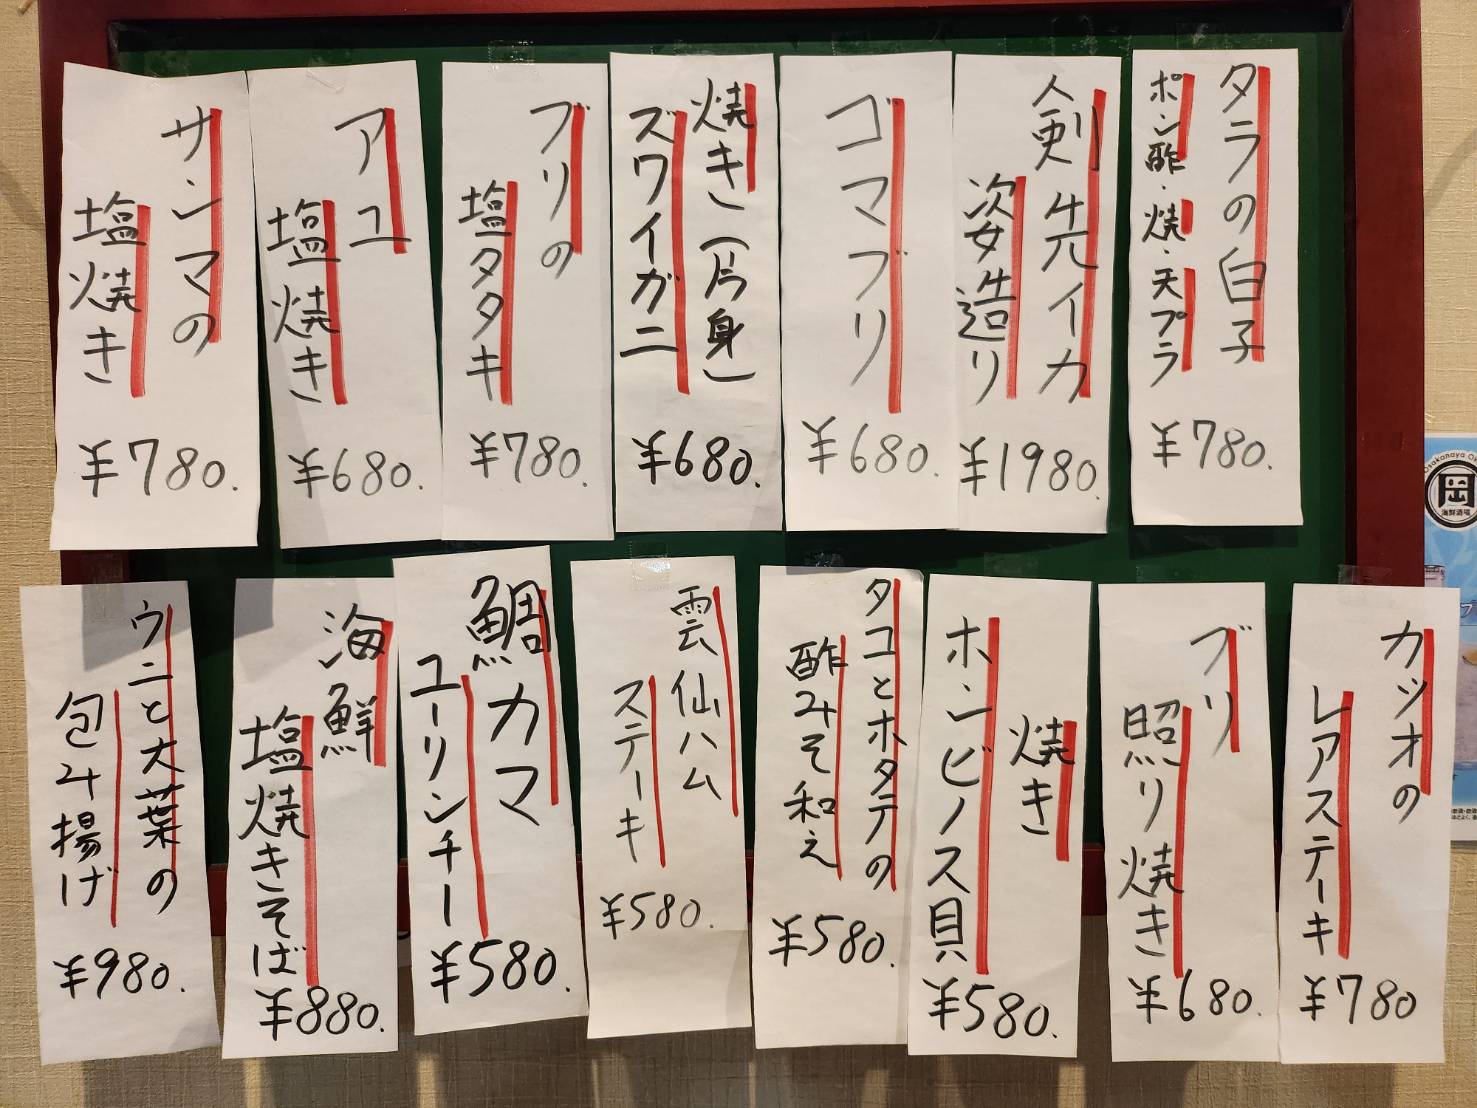 タラの白子
ポン酢・焼・天プラ
¥780.
剣先イカ
姿造り
¥1980.
ゴマブリ
¥680.
焼き(片身)
ズワイガニ
¥680.
ブリの
塩タタキ
¥780.
アユ
塩焼き
¥680.
サンマの
塩焼き
¥780.
カツオの
レアステーキ
¥780
ブリ
照り焼き
¥680.
焼き
ホンビノス貝
¥580.
タコとホタテの
酢みそ和え
¥580.
雲仙ハム
ステーキ
¥580.
鯛カマ
ユーリンチー
¥580.
海鮮
塩焼きそば
¥880.
ウニと大葉の
包み揚げ
¥980.
Osakanaya Ok
岡
海鮮酒場